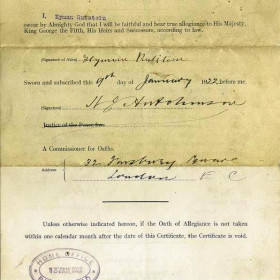 I, Hyman Rufstein
swear by Almighty God that I will be faithful and bear true allegiance to His Majesty,
King George the Fifth, His Heirs and Successors, according to law.
(Signature of Alien) Hyman
Sworn and subscribed this 9th day of January 1922 before me
(Signature) H J Hutchinson
Justice of the Peace for
A Commissioner for Oaths
32 Finsbury Square
Address
London E C
Unless otherwise indicated hereon, if the Oath of Allegiance is not taken
within one calendar month after the date of this Certificate, the Certificate is void.
HOME OFFICE
JAN 1922